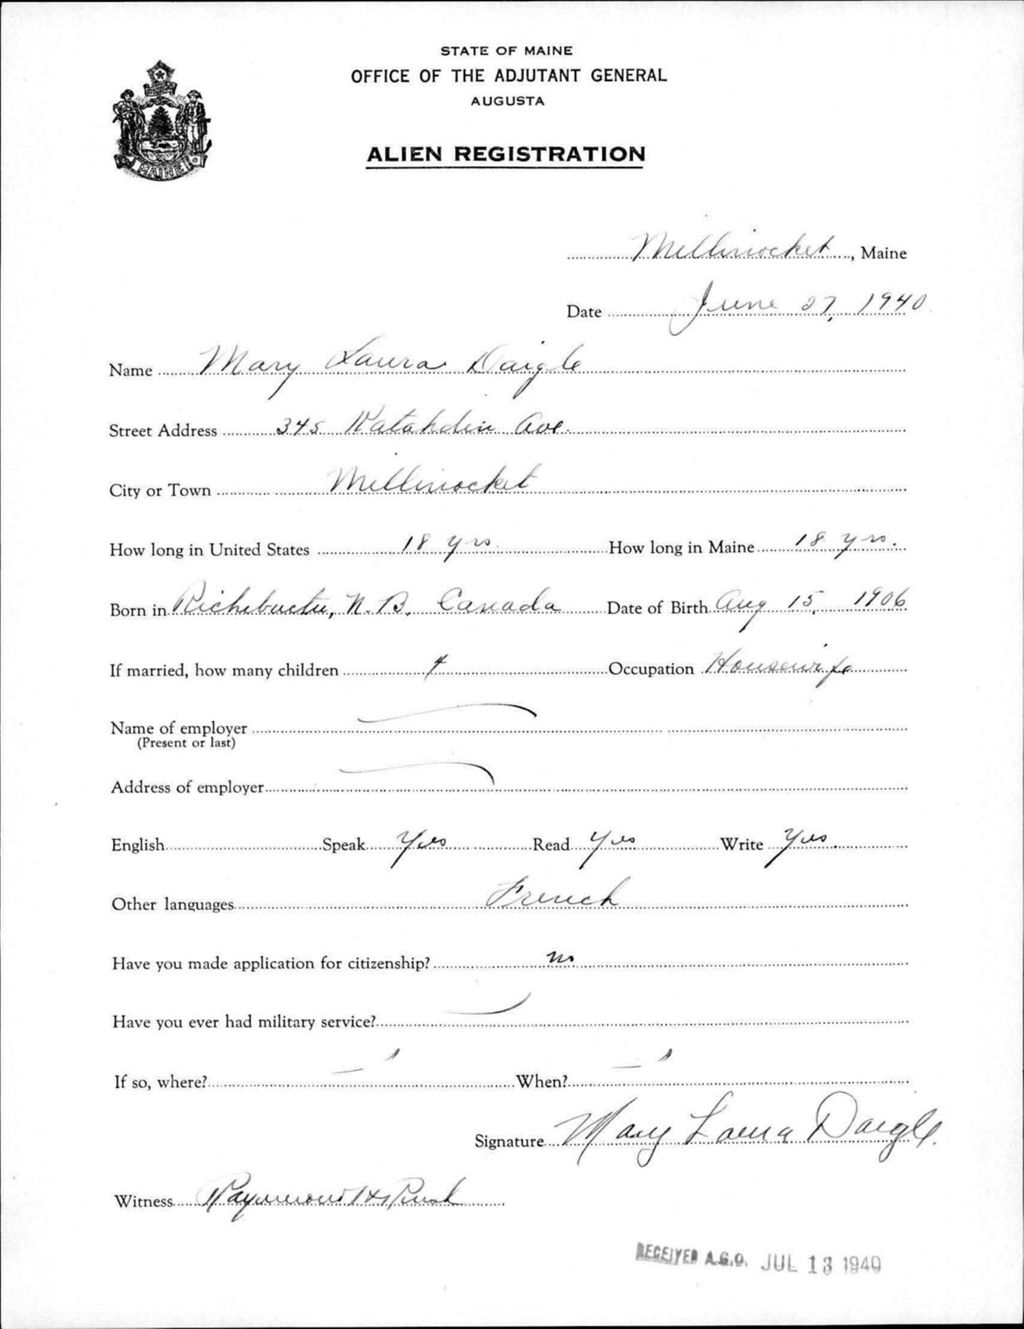 STATE OF MAINE
OFFICE OF THE ADJUTANT GENERAL
AUGUSTA
ALIEN REGISTRATION
MAINE
Millinocket, Maine
Date June 27, 1940
Name Mary Laura Daigle
Street Address 345 Katahdin Ave.
City or Town Millinocket
How long in United States 18 yrs. How long in Maine 18 yrs.
Born in Richebuctu, N.B. Canada Date of Birth Aug 15, 1906
If married, how many children 4 Occupation Housewife
Name of employer
(Present or last)
Address of employer
English Speak Yes Read Yes Write Yes.
Other languages French
Have you made application for citizenship? no
Have you ever had military service?
If so, where? When?
Signature Mary Laura Daigle
Witness Raymond H. Rush
RECEIVED A.G.O. JUL 13 1940